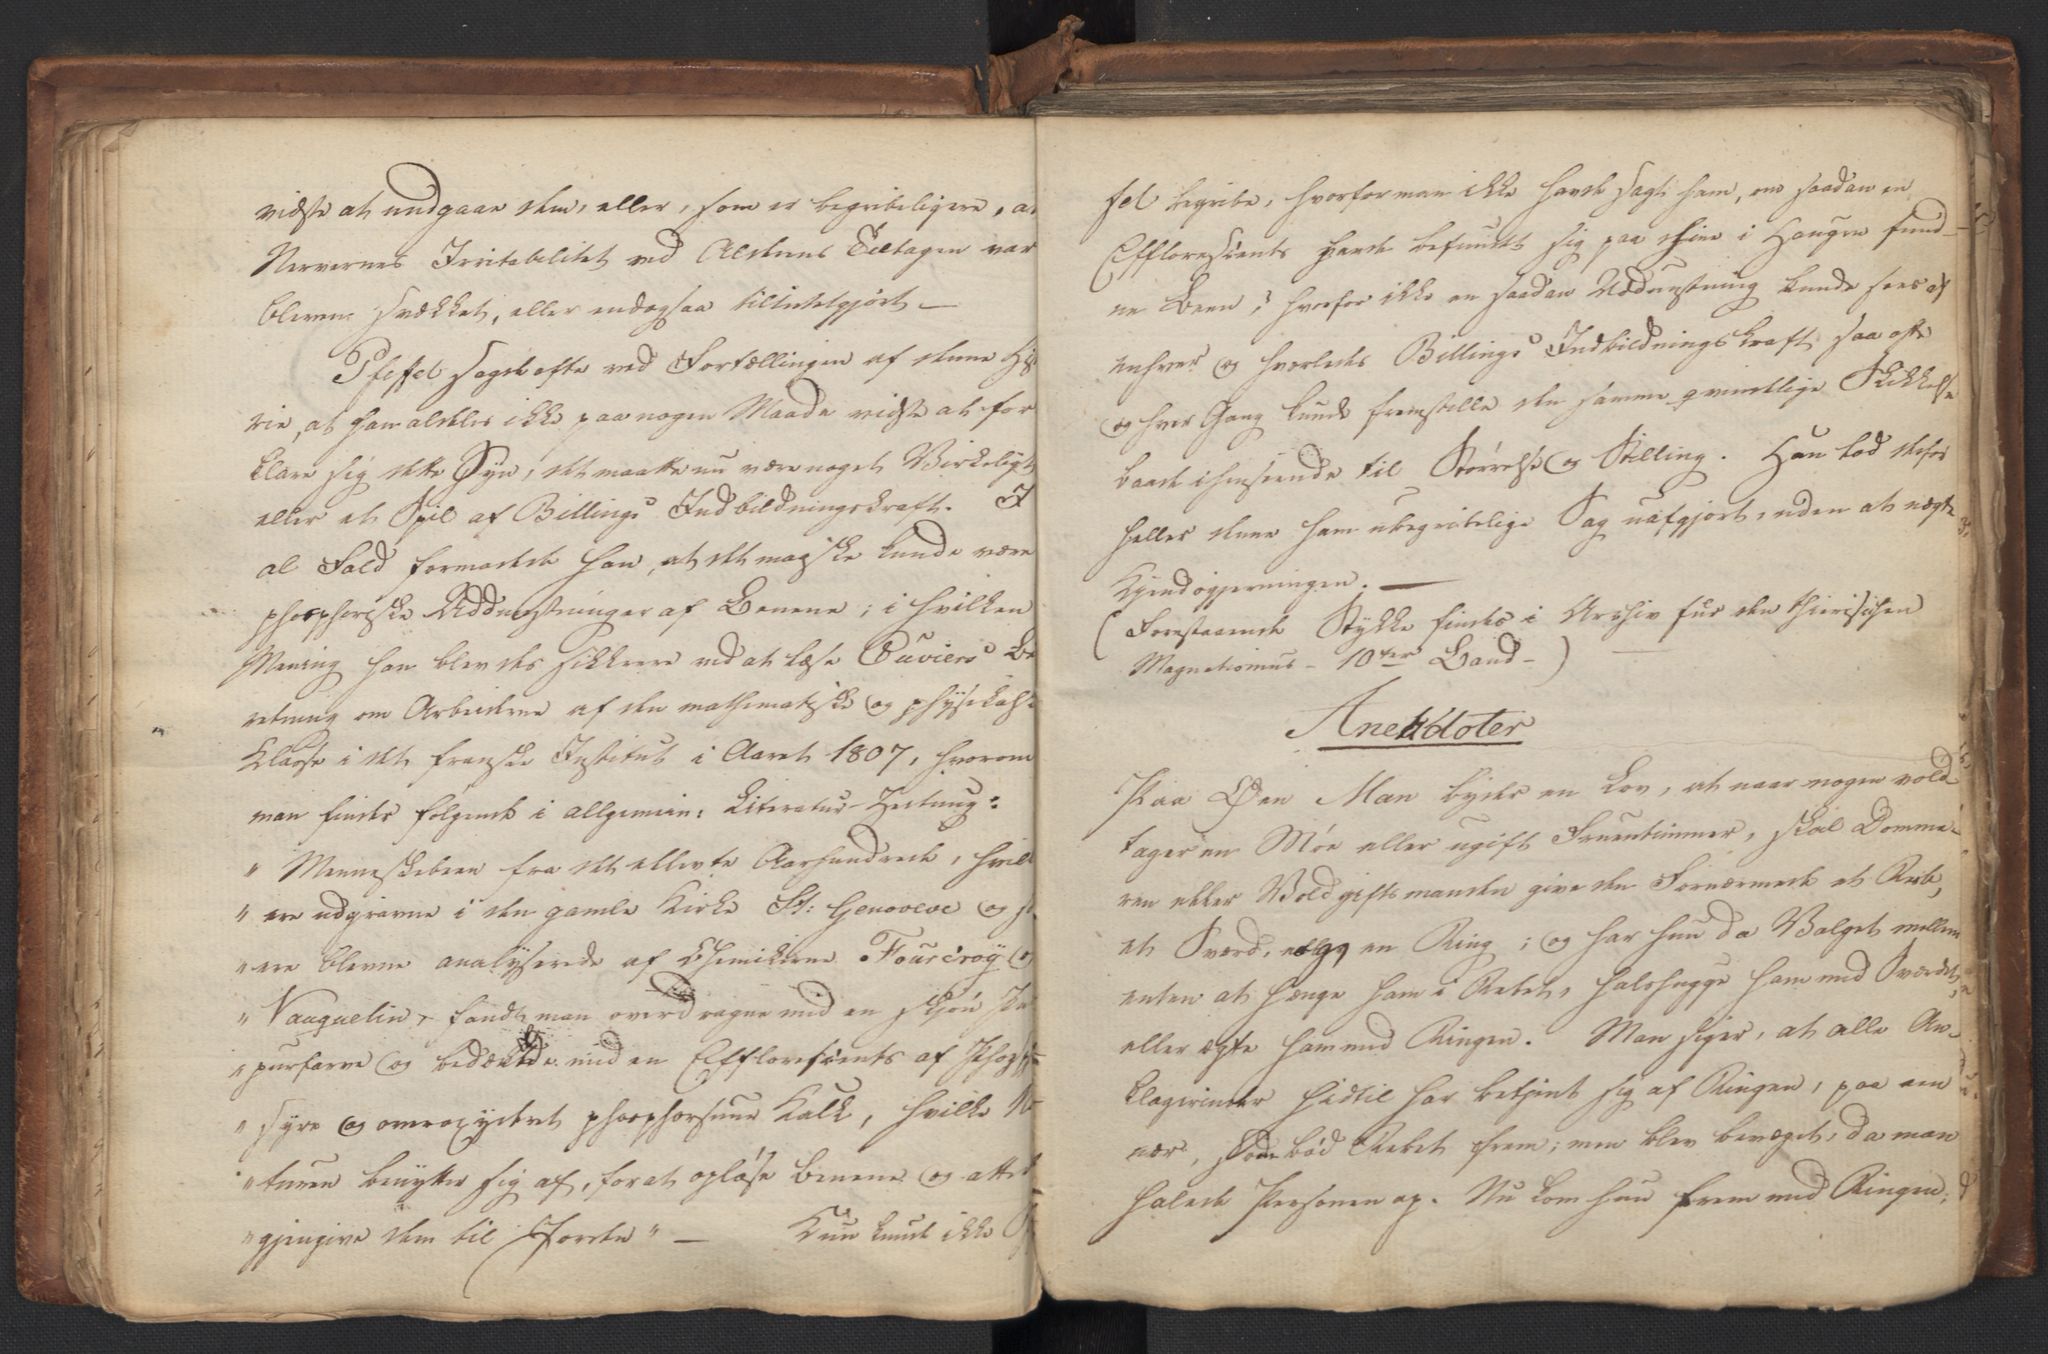 vidste at undgaae dem, eller, som er begribeligere, at
Nervernes Irritabilitet ved Alderens Tiltagen var
bleven svækket, eller endogsaa tilintetgjort —
Pfeffel sagde ofte ved Fortællingen af denne Hi
rie, at han aldeles ikke paa nogen Maade vidste at for
klare sig dette Syn, det maatte nu være noget Virkeligt
eller et Spil af Billings Indbildningskraft. I
al Fald formodede han, at det magiske kunde være
phosphoriske Uddunstninger af Benene; i hvilken
Mening han blev des sikkrere ved at læse Cuviers Be
retning om Arbeiderne af den mathematiske og physikalske
Klasse i det franske Institut i Aaret 1807, hvorom
man findes følgende i allgemein: Literatur-Zeitung:
" Menneskebeen fra det ellevte Aarhundrede, hvil
" ere udgravne i den gamle Kirke St: Genoveve og
" ere blevne analyserede af Chemikerne Fourcroy o
" Vauquelin, fandt man overdragne med en skjøn Pur
" purfarve og bedækkede med en Efflorescents af Phosphor
" syre og overoxyderet phosphorsuur Kalk, hvilke Na
" turen benytter sig af, for at opløse Benene og atter
" gjengive dem til Jorden " — Kun kunde ikke Pf
fel begribe, hvorfor man ikke havde sagt ham, om saadan en
Efflorescents havde befundet sig paa disse i Haugen fund-
ne Been, hvorfor ikke en saadan Uddunstning kunde sees af
enhver og hvorledes Billings Indbildningskraft saa ofte
og hver Gang kunde fremstille den samme qvindelige Skikkelse
baade i henseende til Størrelse og Stilling. Han lod derfor
heller denne ham ubegribelige Sag uafgjort, uden at nægte
Kjendsgjerningen. —
( Forestaaende Stykke findes i Archiv fur den thierischen
Magnetismus - 10ter Band - )
Anekdoter
Paa Øen Man byder en Lov, at naar nogen vold
tager en Møe eller ugift Fruentimmer, skal Domme-
ren eller Voldgiftsmanden give den Fornærmede et Reb,
et Sværd, og en Ring; og har hun da Valget mellem
enten at hænge ham i Rebet, halshugge ham med Sværdet,
eller ægte ham med Ringen. Man siger, at alle An-
klagerinder hidtil har betjent sig af Ringen, paa een
nær, som bød Rebet frem; men blev bevæget, da man
halede Personen op. Nu kom hun frem med Ringen;